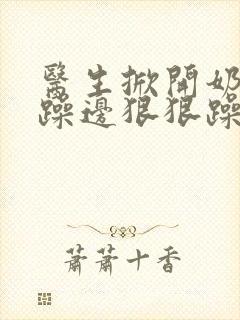 醫生掀開奶
躁邊狠狠躁
蕭蕭十香